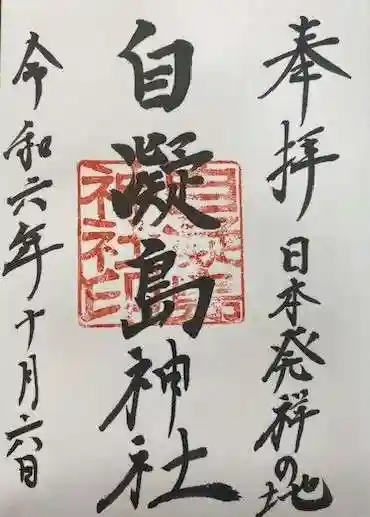 奉拝 日本発祥の地
自凝島神社
自凝島神社印
令和六年十月六日